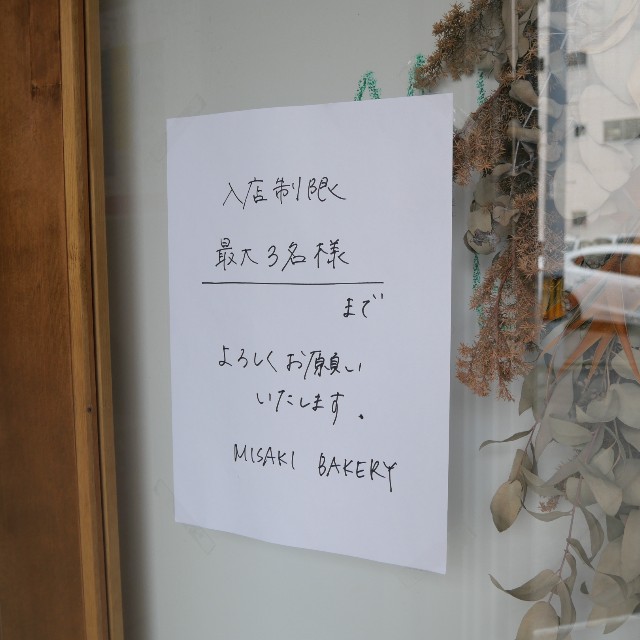 入店制限
最大3名様
まで
よろしくお願い
いたします。
MISAKI BAKERY